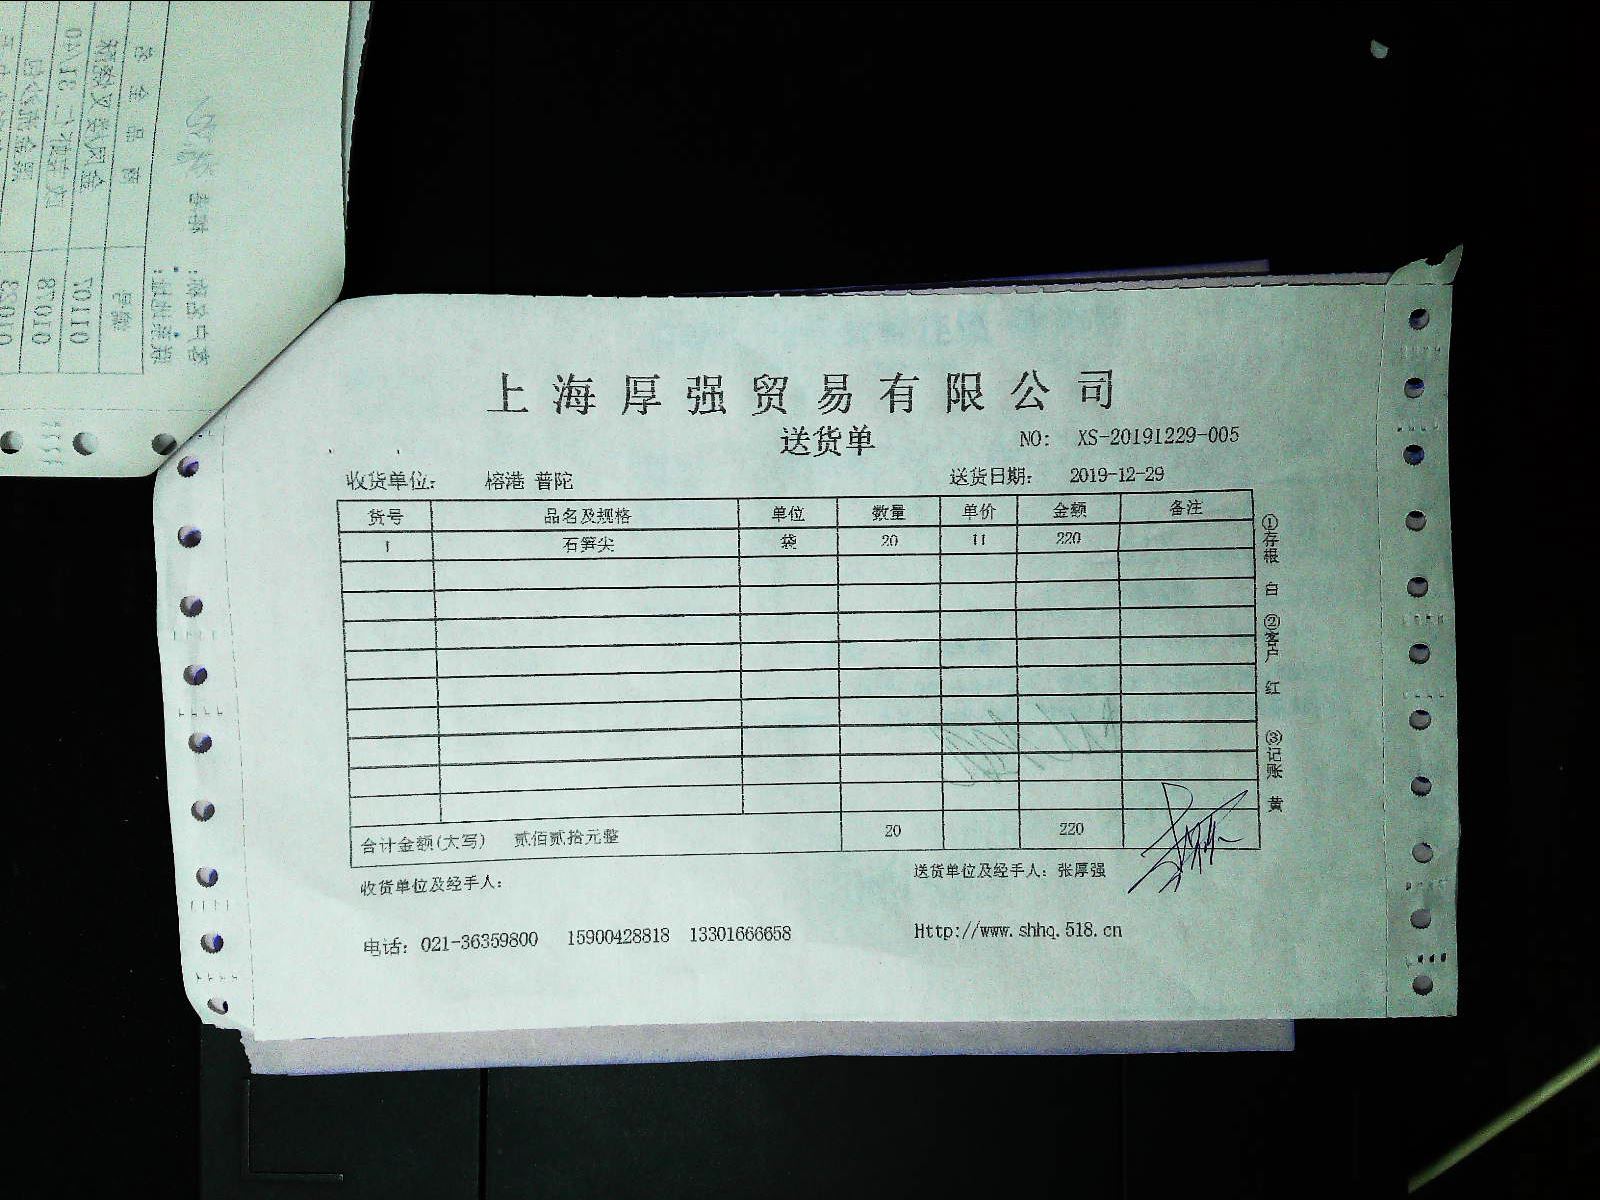 上海厚强贸易有限公司
送货单 NO: XS-20191229-005
收货单位: 榕港 普陀 送货日期: 2019-12-29
货号 品名及规格 单位 数量 单价 金额 备注
1 石笋尖 袋 20 11 220
合计金额(大写) 贰佰贰拾元整 20 220
收货单位及经手人: 送货单位及经手人: 张厚强
电话: 021-36359800 15900428818 13301666658 Http://www.shhq.518.cn
①存根 白 ②客户 红 ③记账 黄
70110
87010